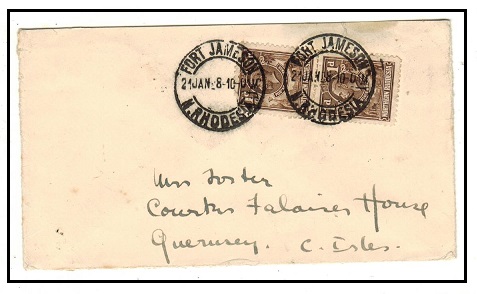 FORT JAMESON
21 JAN 8-10
N. RHODESIA
FORT JAMESON
21 JAN 8-10
N. RHODESIA
Miss Foster
Courtes Falaises House
Guernsey. C. Isles.